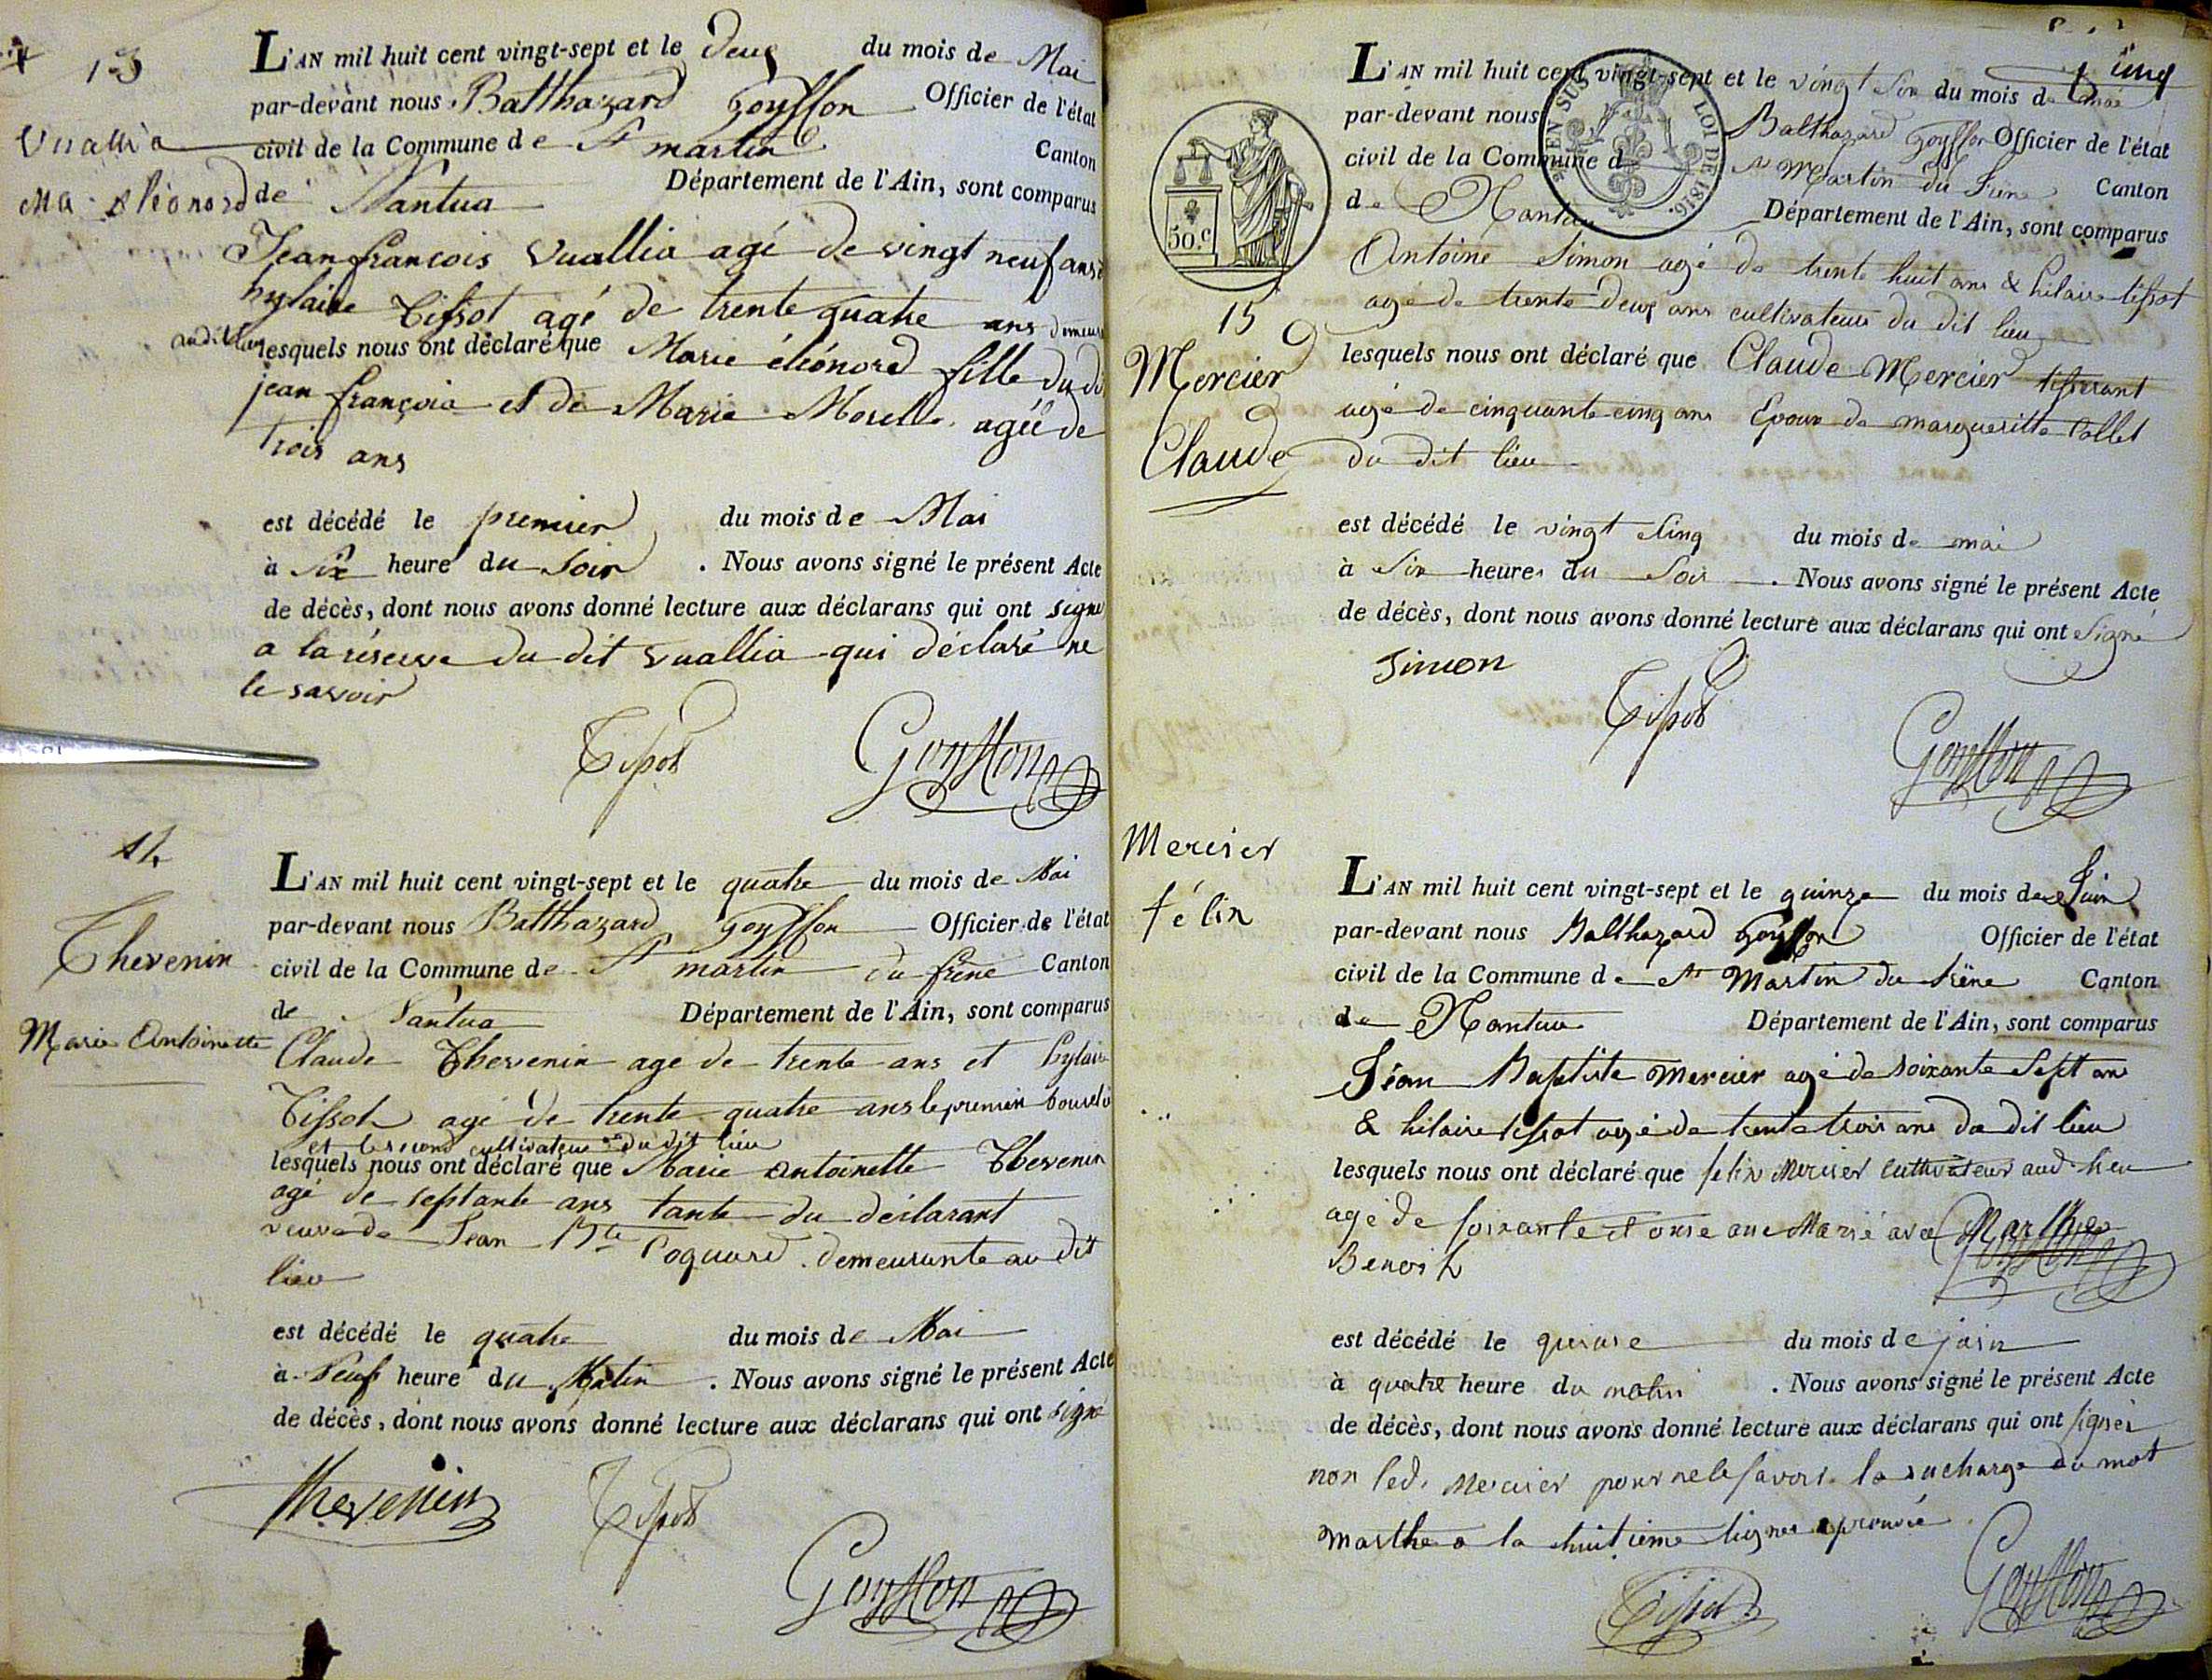 13
Vuallia
Ma. éléonord
L'AN mil huit cent vingt-sept et le deux du mois de Mai
par-devant nous Balthazard Goyffon Officier de l'état
civil de la Commune de St martin Canton
de Nantua Département de l'Ain, sont comparus
Jean françois Vuallia agé de vingt neuf ans
hylaire Tissot agé de trente quatre ans
audit lieu lesquels nous ont déclaré que Marie éléonord fille du
jean françois et de Marie Morelle agée de
trois ans
est décédé le premier du mois de Mai
à six heure du Soir . Nous avons signé le présent Acte
de décès, dont nous avons donné lecture aux déclarans qui ont signé
a la réserve du dit Vuallia qui déclaré ne
le savoir
Tissot Goyffon
14
Thevenin
Marie Antoinette
L'AN mil huit cent vingt-sept et le quatre du mois de Mai
par-devant nous Balthazard Goyffon Officier de l'état
civil de la Commune de St martin du frêne Canton
de Nantua Département de l'Ain, sont comparus
Claude Thevenin agé de trente ans et hylaire
Tissot agé de trente quatre ans le premier
et le second cultivateur du dit lieu
lesquels nous ont déclaré que Marie Antoinette Thevenin
agé de septante ans tante du déclarant
veuve de Jean Bte Coquard demeurante au dit
lieu
est décédé le quatre du mois de Mai
à Neuf heure du Matin . Nous avons signé le présent Acte
de décès, dont nous avons donné lecture aux déclarans qui ont signé
Thevenin Tissot
Goyffon
cinq
EN SUS LOI DE 1816.
50.c
15
Mercier
Claude
L'AN mil huit cent vingt-sept et le vingt six du mois de mai
par-devant nous Balthazard Goyffon Officier de l'état
civil de la Commune de St Martin du Frêne Canton
de Nantua Département de l'Ain, sont comparus
Antoine Simon agé de trente huit ans & hilaire tissot
agé de trente deux ans cultivateurs du dit lieu
lesquels nous ont déclaré que Claude Mercier tisserant
agé de cinquante cinq ans Epoux de margueritte Collet
du dit lieu
est décédé le vingt Cinq du mois de mai
à Six heures du Soir . Nous avons signé le présent Acte
de décès, dont nous avons donné lecture aux déclarans qui ont Signé
Simon
Tissot
Goyffon
Mercier
félix
L'AN mil huit cent vingt-sept et le quinze du mois de Juin
par-devant nous Balthazard Goyffon Officier de l'état
civil de la Commune de St Martin du Frêne Canton
de Nantua Département de l'Ain, sont comparus
Jean Baptiste Mercier agé de soixante Sept ans
& hilaire tissot agé de trente trois ans du dit lieu
lesquels nous ont déclaré que félix Mercier cultivateur aud. lieu
agé de soixante et onse ans Marié avec Marthe
Benoit Goyffon
est décédé le quinse du mois de juin
à quatre heure du matin . Nous avons signé le présent Acte
de décès, dont nous avons donné lecture aux déclarans qui ont signés
non led. Mercier pour ne le savoir. la surcharge du mot
marthe a la huitième lignes aprouvée
Tissot Goyffon